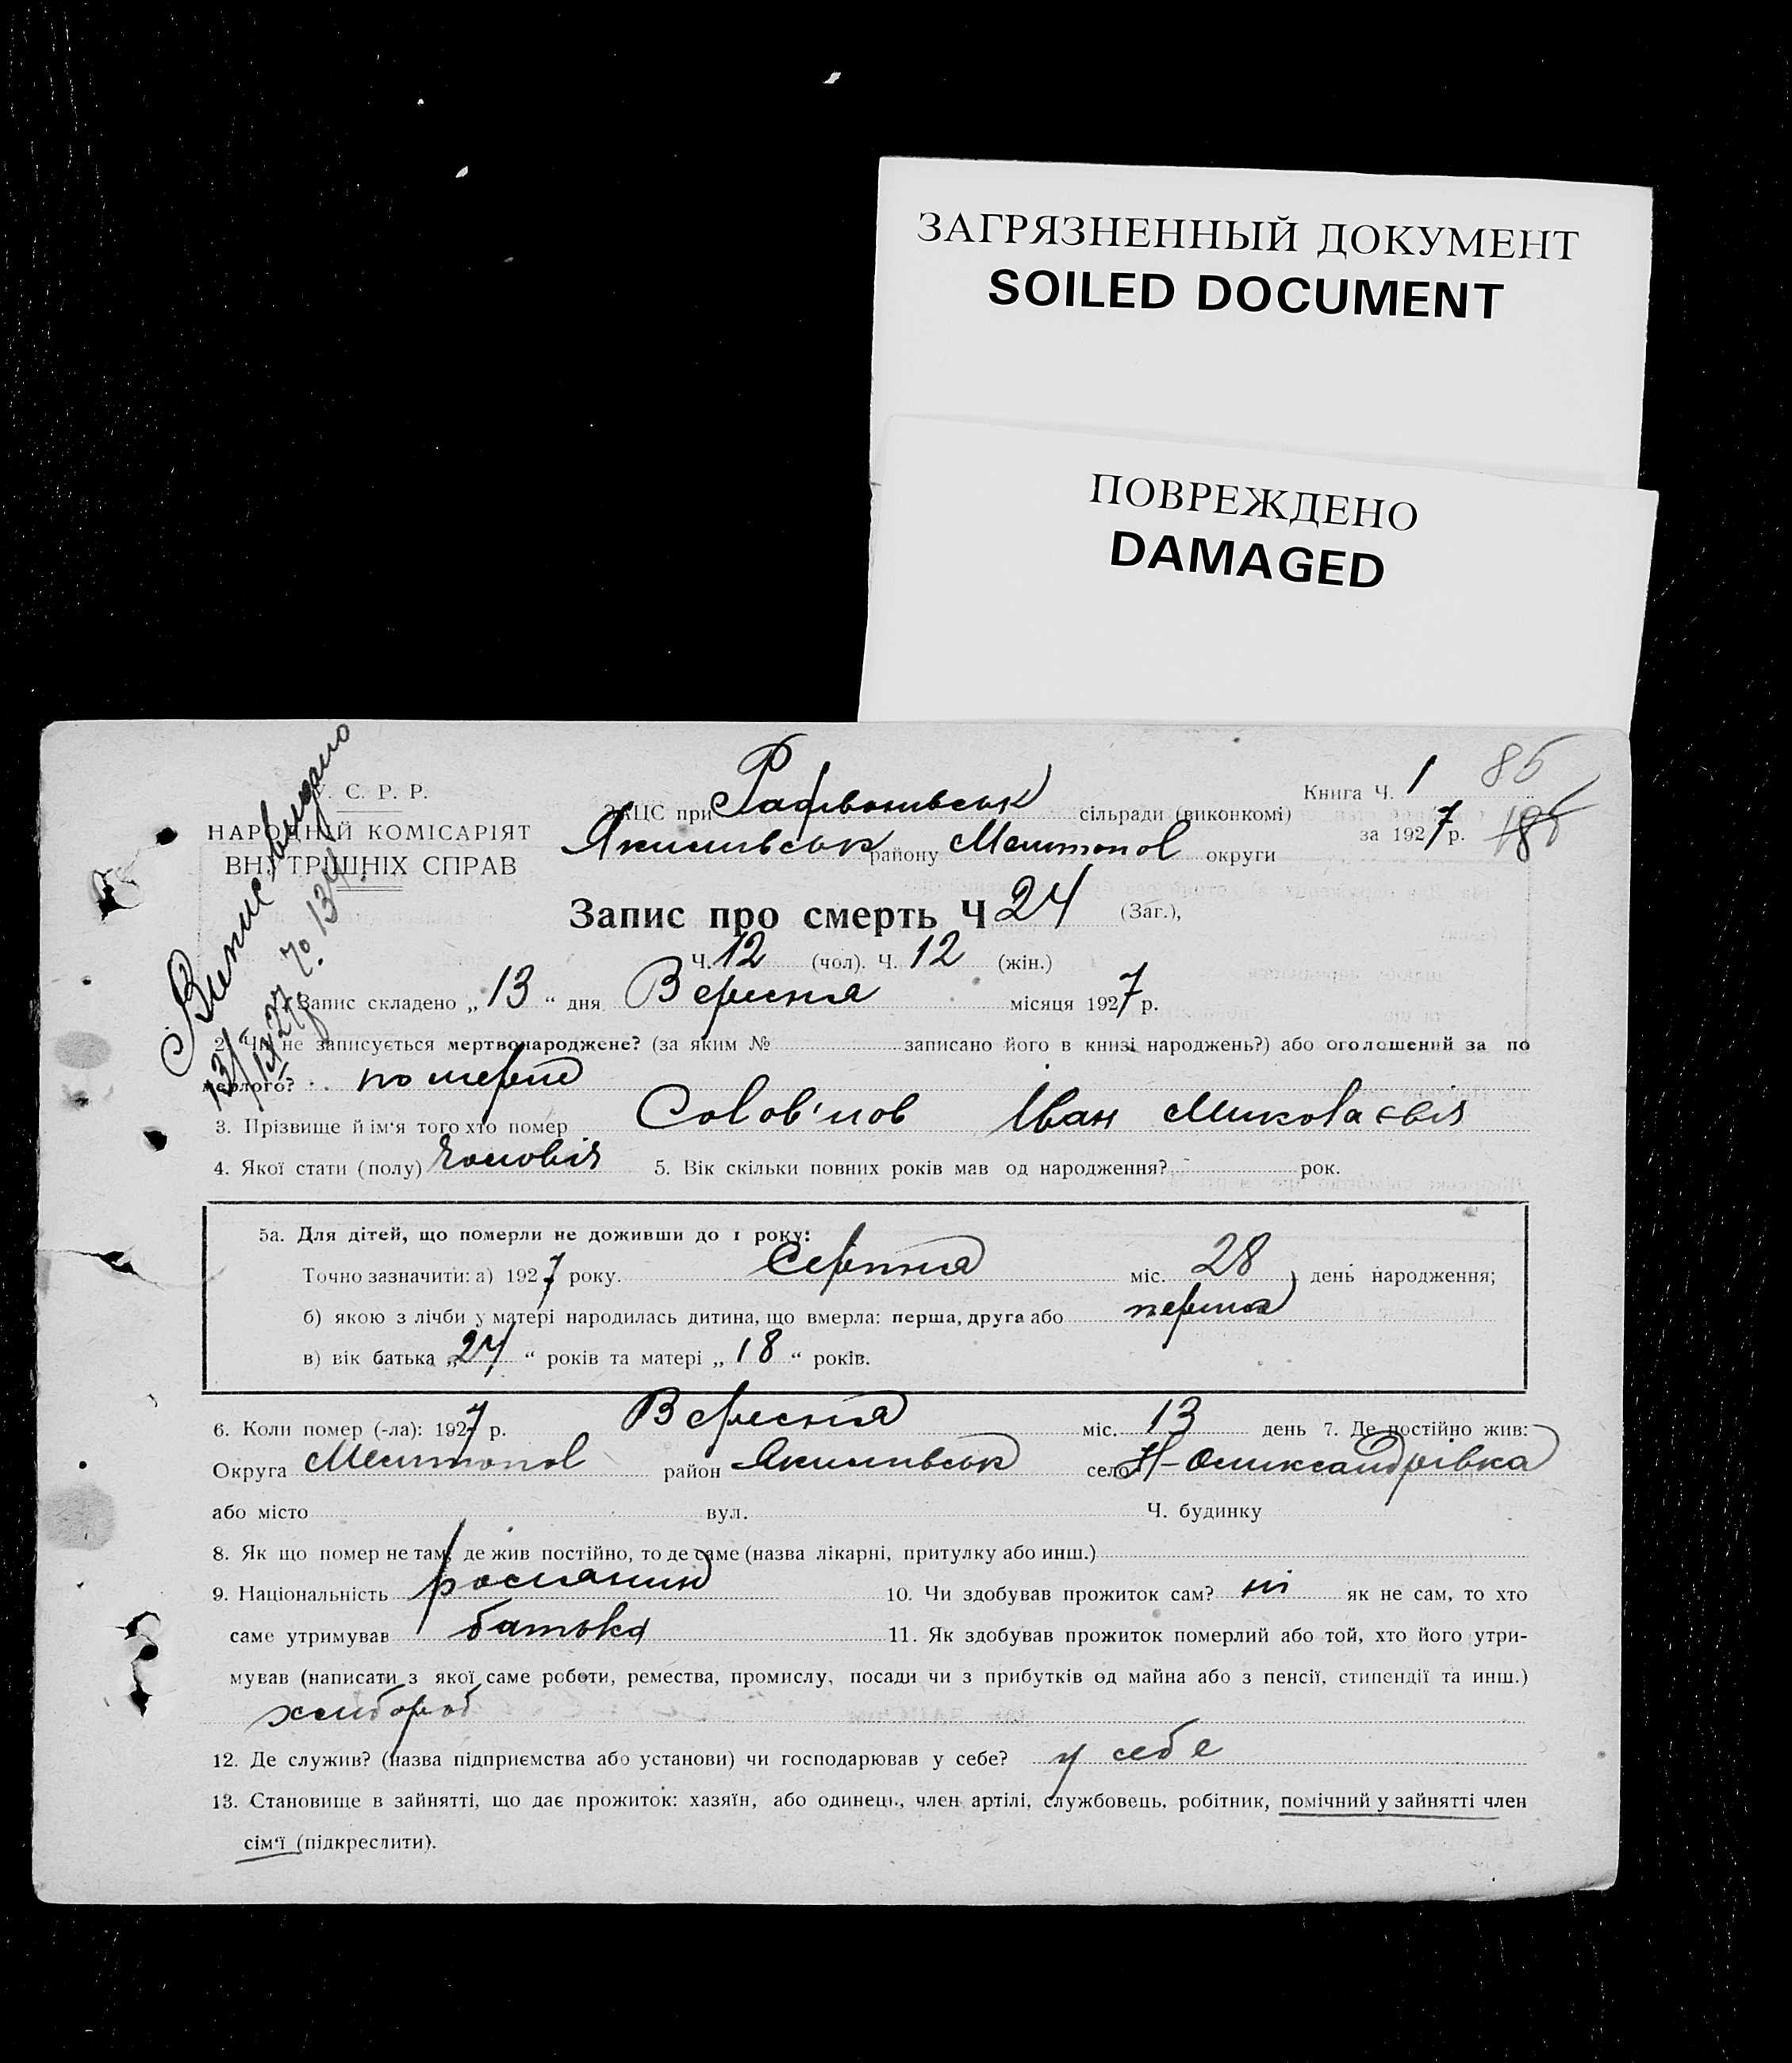 ЗАГРЯЗНЕННЫЙ ДОКУМЕНТ
SOILED DOCUMENT
ПОВРЕЖДЕНО
DAMAGED
У. С. Р. Р.
НАРОДНІЙ КОМІСАРІЯТ
ВНУТРІШНІХ СПРАВ
Випис видано
13/IX 27 р. № 134
ЗАЦС при сільради (виконкомі)
Якимивськ району Мелитопол округи
Книга Ч. 1 86
за 1927 р.
Запис про смерть Ч 24 (Заг.),
Ч. 12 (чол). Ч. 12 (жін.)
Запис складено „13“ дня Вересня місяця 1927 р.
2. Чи не записується мертвонароджене? (за яким № записано його в книзі народжень?) або оголошений за по
мерлого? померле
3. Прізвище й ім'я того хто помер Солов'йов Іван Миколаєвіч
4. Якої стати (полу) Чоловіч 5. Вік скільки повних років мав од народження? - рок.
5а. Для дітей, що померли не доживши до 1 року:
Точно зазначити: а) 1927 року. Серпня міс. 28 день народження;
б) якою з лічби у матері народилась дитина, що вмерла: перша, друга або перша
в) вік батька „24“ років та матері „18“ років.
6. Коли помер (-ла): 1927 р. Вересня міс. 13 день 7. Де постійно жив:
Округа Мелитопол район Якимивськ село Н-Оликсандрівка
або місто вул. Ч. будинку
8. Як що помер не там, де жив постійно, то де саме (назва лікарні, притулку або инш.)
9. Національність росиянин 10. Чи здобував прожиток сам? ні як не сам, то хто
саме утримував батько 11. Як здобував прожиток померлий або той, хто його утри-
мував (написати з якої саме роботи, ремества, промислу, посади чи з прибутків од майна або з пенсії, стипендії та инш.)
хлибороб
12. Де служив? (назва підприємства або установи) чи господарював у себе? у себе
13. Становище в зайнятті, що дає прожиток: хазяїн, або одинець, член артілі, службовець, робітник, помічний у зайнятті член
сім'ї (підкреслити).